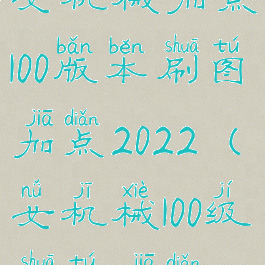 女机械加点
bǎn běn shuā tú
100版本刷图
jiā diǎn
加点2022（
nǚ jī xiè jí
女机械100级
shuā tú jiā diǎn